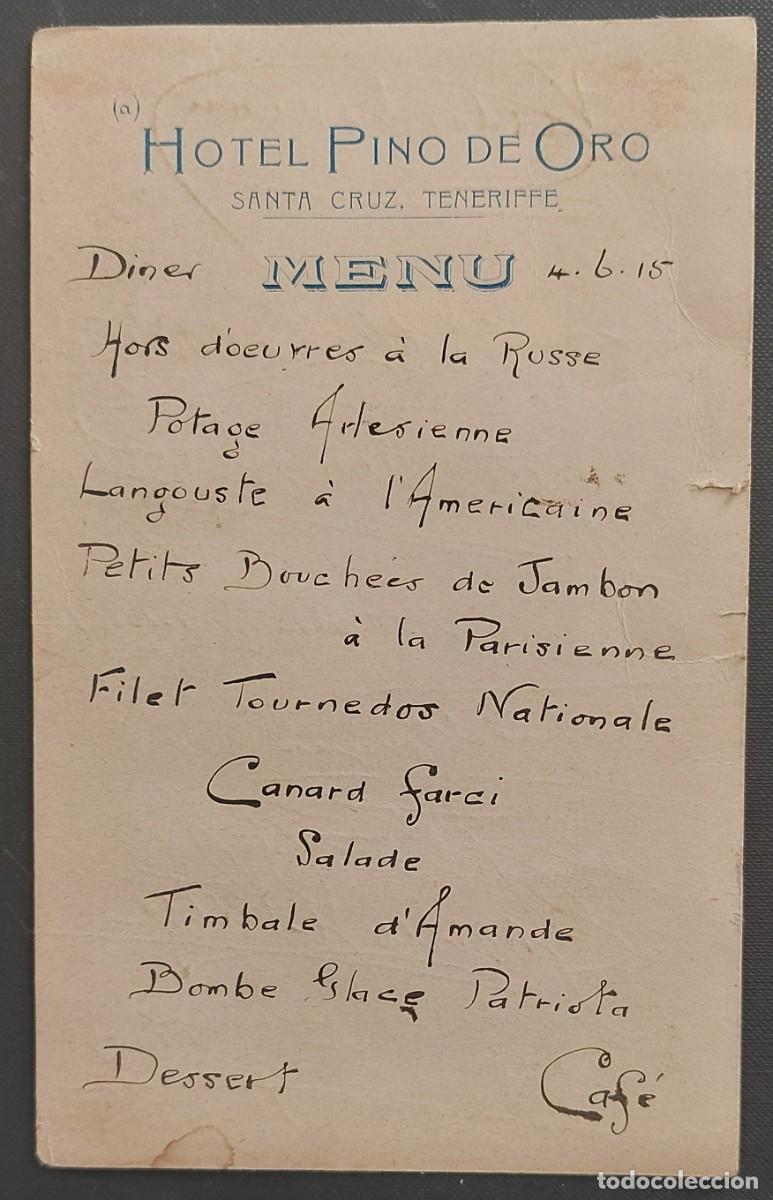 (a)
HOTEL PINO DE ORO
SANTA CRUZ, TENERIFFE
Diner MENU 4.6.15
Hors d'oeuvres à la Russe
Potage Arlesienne
Langouste à l'Americaine
Petits Bouchées de Jambon
à la Parisienne
Filet Tournedos Nationale
Canard farci
Salade
Timbale d'Amande
Bombe Glace Patriota
Dessert Café
todocoleccion